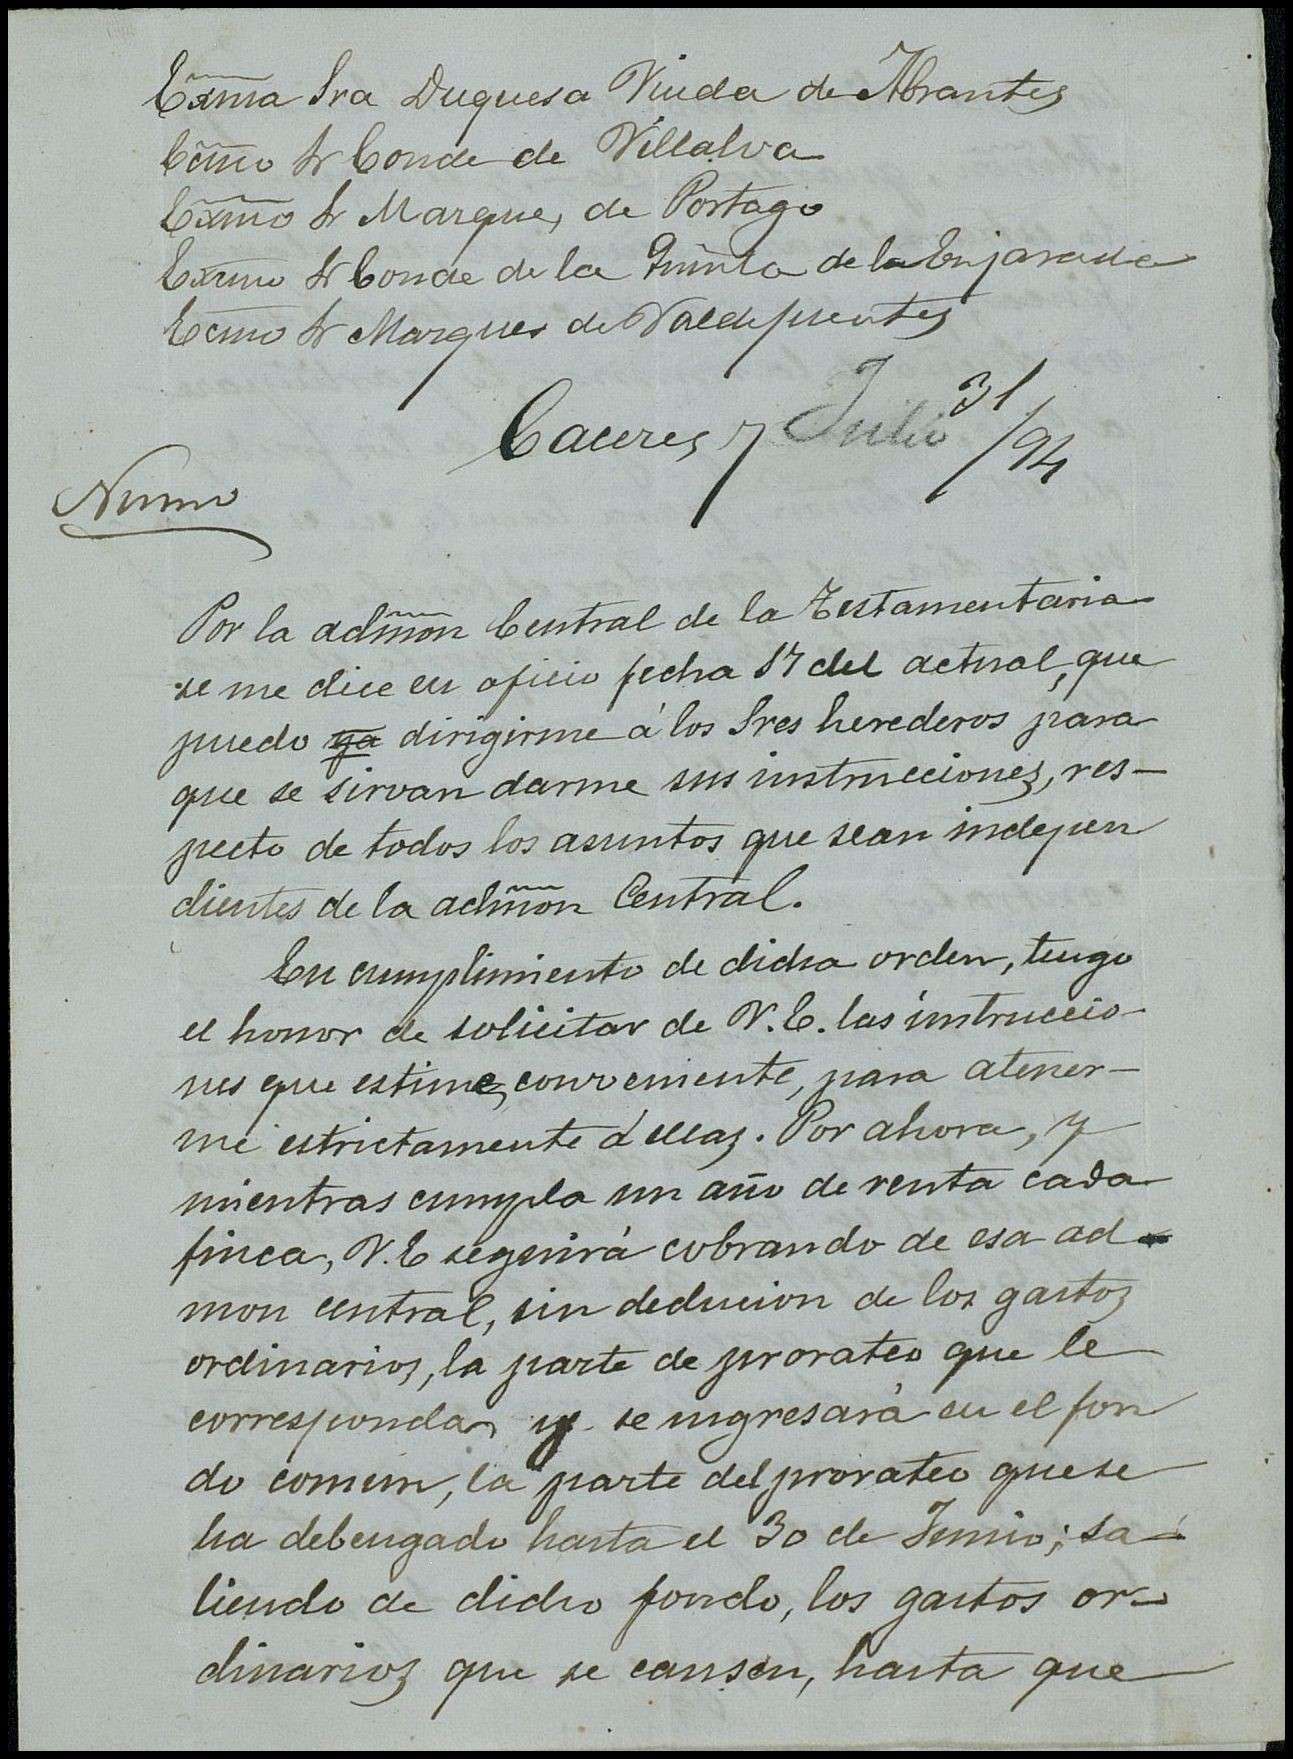 Exma Sra Duquesa Viuda de Abrantes
Exmo Sr Conde de Villalva
Exmo Sr Marques de Portago
Exmo Sr Conde de la Quinta de la Enjarada
Exmo Sr Marques de Valdefuentes
Caceres 7 Julio 31/94
Por la admon Central de la Testamentaria
se me dice en oficio fecha 17 del actual, que
puedo ya dirigirme á los Sres herederos para
que se sirvan darme sus instrucciones, res-
pecto de todos los asuntos que sean indepen
dientes de la admon Central.
En cumplimiento de dicha orden, tengo
el honor de solicitar de V.E. las instruccio-
nes que estime conveniente, para atener-
me estrictamente á ellas. Por ahora, y
mientras cumpla un año de renta cada
finca, V.E seguirá cobrando de esa ad
mon central, sin deducion de los gastos
ordinarios, la parte de prorateo que le
corresponda, y se ingresará en el fon
do comun, la parte del prorateo que se
ha debengado hasta el 30 de Junio; sa-
liendo de dicho fondo, los gastos or-
dinarios que se causen, hasta que